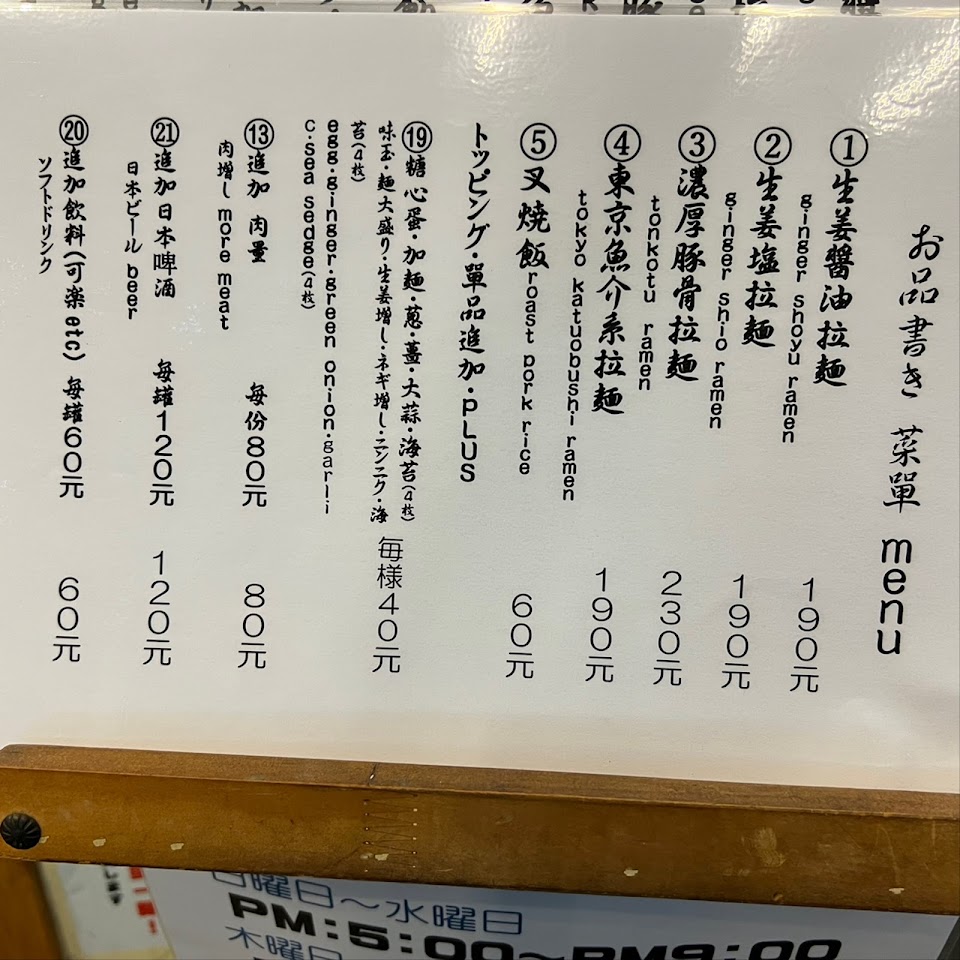 お品書き 菜單 menu
①生姜醬油拉麺 190元
ginger shoyu ramen
②生姜塩拉麺 190元
ginger shio ramen
③濃厚豚骨拉麺 230元
tonkotu ramen
④東京魚介系拉麺 190元
tokyo katuobushi ramen
⑤叉焼飯 roast pork rice 60元
トッピング・單品追加・PLUS
⑲糖心蛋・加麺・蔥・薑・大蒜・海苔(4枚) 每様40元
味玉・麺大盛り・生姜増し・ネギ増し・ニンニク・海
苔(4枚)
egg.ginger.green onion.garli
c.sea sedge(4枚)
⑬追加 肉量 每份80元 80元
肉増し more meat
㉑追加日本啤酒 每罐120元 120元
日本ビール beer
⑳追加飲料(可楽 etc) 每罐60元 60元
ソフトドリンク
日曜日〜水曜日
PM:5:00〜PM9:00
木曜日